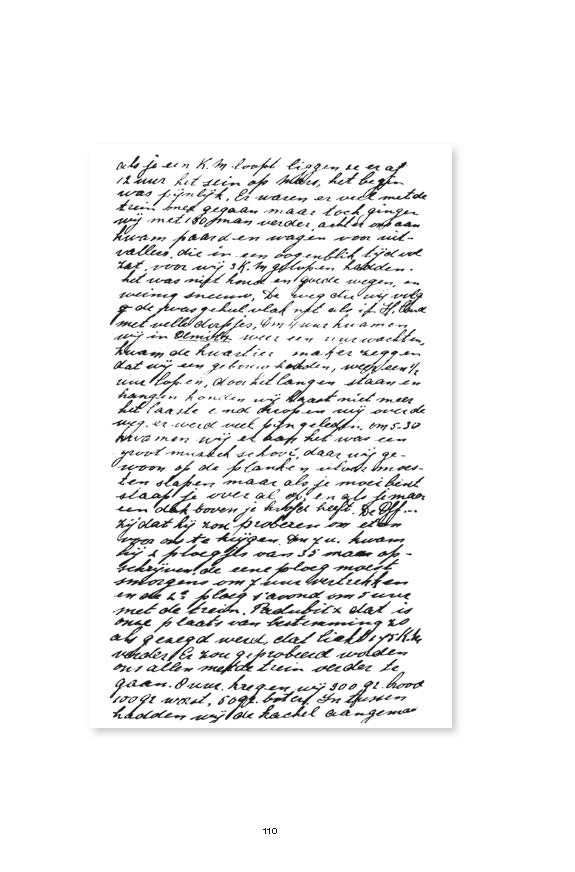 als je een K.M. loopt liggen ze er af
12 uur het sein op Mars, het begin
was pijnlijk. Er waren er veel met de
trein gegaan maar toch gingen
wij met 180 man verder, achter ons aan
kwam paard en wagen voor uit-
vallers, die in een oogenblik tijd vol
zat, voor wij 3 K.M. geloopen hadden.
het was niet koud en goede wegen, en
weinig sneeuw. De weg die wij
was geheel vlak net als in H.land
met vele dorpjes, om 4 uur kwamen
wij in Olmütz weer een uur wachten,
kwam de kwartier maker zeggen
dat wij een gebouw hadden, weer een ½
uur lopen, door het langen staan en
hangen konden wij haast niet meer
het laaste end kropen wij over de
weg. er werd veel pijn geleden. om 5.30
kwamen wij er aan het was een
groot muziek school, daar wij ge-
woon op de planken vloer moes-
ten slapen maar als je moei bent
slaap je over al op, en als je maar
een dak boven je hoofd heeft. De Off...
zij dat hij zou proberen om eten
voor ons te krijgen. Om 7 u. kwam
hij 2 ploegjes van 35 man op-
schrijven. de eene ploeg moest
smorgens om 7 uur vertrekken
en de 2e ploeg s'avond om 5 uur
met de trein. Padubitx dat is
onze plaats van bestemming zo
als gezegd werd, dat licht 175 K.M.
verder. Er zou geprobeerd wolden
ons allen met de trein verder te
gaan. 8 uur. kregen wij 300 gr. brood
100 gr. worst, 50 gr. boter. In tussen
hadden wij de kachel aangema
110